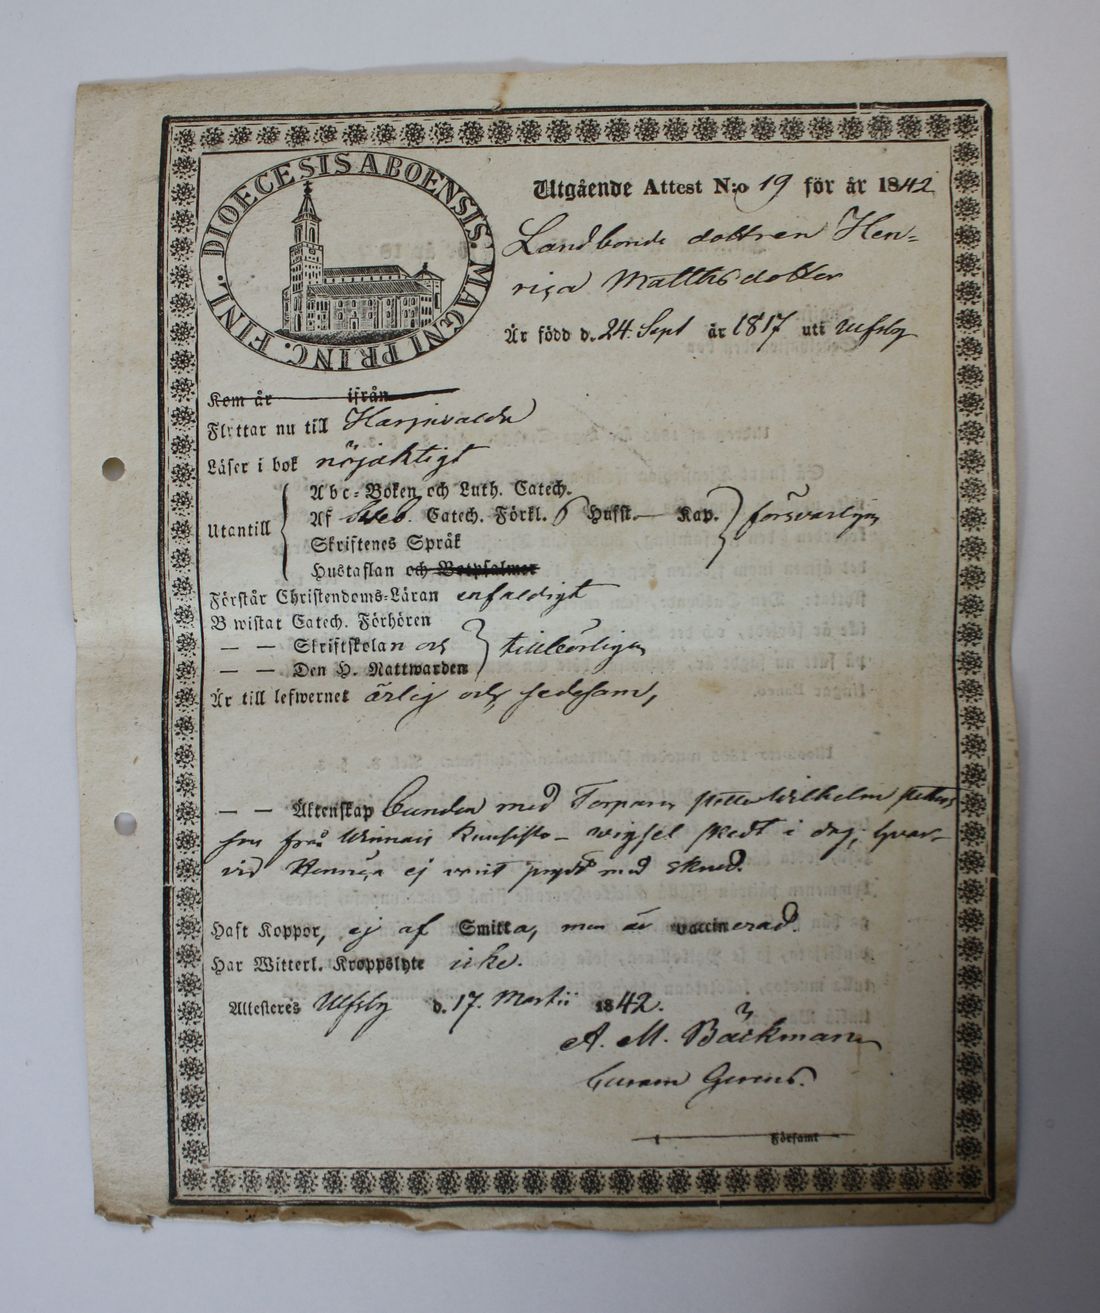 DIOECESIS ABOENSIS. MAGNI PRINC. FINL.
Utgående Attest N:o 19 för år 1842
Landbonde dottren Hen-
rica Matthsdotter
Är född d. 24 Sept år 1817 uti Ulfsby
Kom år ifrån
Flyttar nu till Harjavalda
Läser i bok nöjaktigt
Abc-Boken och Luth. Catech.
Utantill Af Sveb. Catech. Förkl. Husst. — Kap. försvarligen
Skriftenes Språk
Hustaflan och Botpsalmer
Förstår Christendoms-Läran enfaldigt
Bewistat Catech. Förhören
— — Skriftskolan och tillbörligen
— — Den H. Nattwarden
Är till lefwernet ärlig och sedesam,
— — Äktenskap bunden med Torparen Wilhelm Petters
son från wigsel skedt i dag, hvar-
vid Henrica ej varit prydd med skrud.
Haft Koppor, ej af Smitta, men är vaccinerad.
Har Witterl. Kroppslyte icke.
Attesteres Ulfsby d. 17. Martii 1842.
A. M. Bäckman
Curam Gerens.
Församl